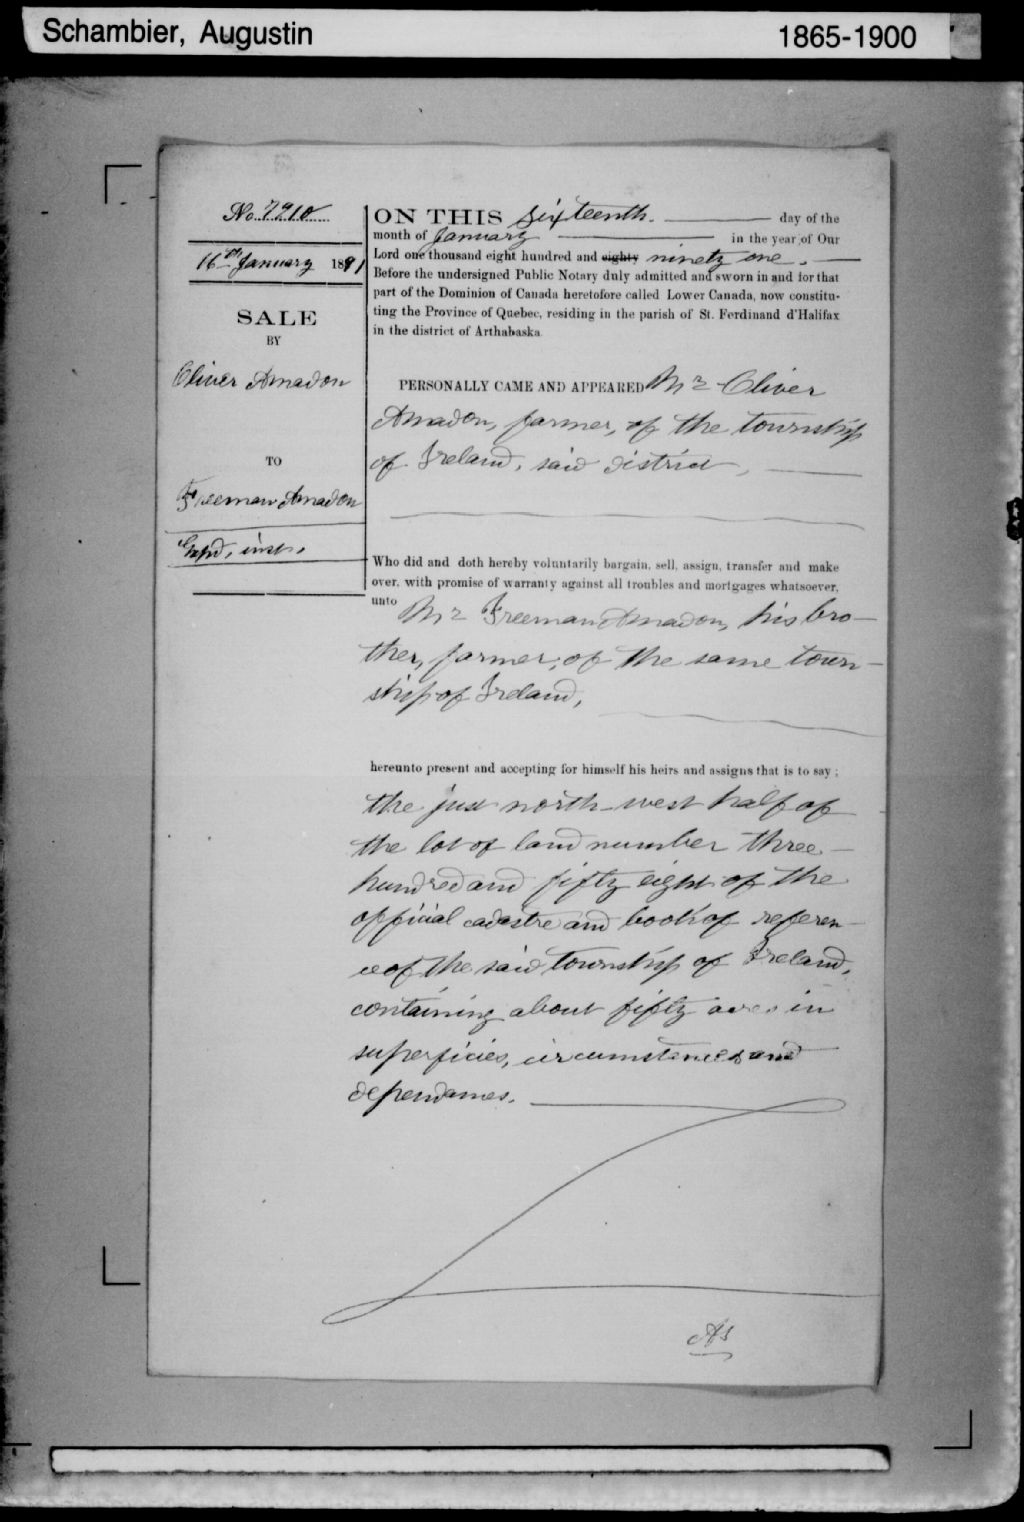 Schambier, Augustin
1865-1900
No. 7210
16th January 1891
SALE
BY
Oliver Amadon
TO
Freeman Amadon
ON THIS sixteenth. day of the
month of January in the year of Our
Lord one thousand eight hundred and eighty ninety one.
Before the undersigned Public Notary duly admitted and sworn in and for that
part of the Dominion of Canada heretofore called Lower Canada, now constitu-
ting the Province of Quebec, residing in the parish of St. Ferdinand d'Halifax
in the district of Arthabaska
PERSONALLY CAME AND APPEARED Mr Oliver
Amadon, farmer, of the township
of Ireland, said district,
Who did and doth hereby voluntarily bargain, sell, assign, transfer and make
over, with promise of warranty against all troubles and mortgages whatsoever,
unto Mr Freeman Amadon, his bro-
ther, farmer, of the same town-
ship of Ireland,
hereunto present and accepting for himself his heirs and assigns that is to say :
the just north-west half of
the lot of land number three
hundred and fifty eight of the
official cadastre and book of referen-
ce of the said township of Ireland,
containing about fifty acres in
superficies, circumstances and
dependances.
AS